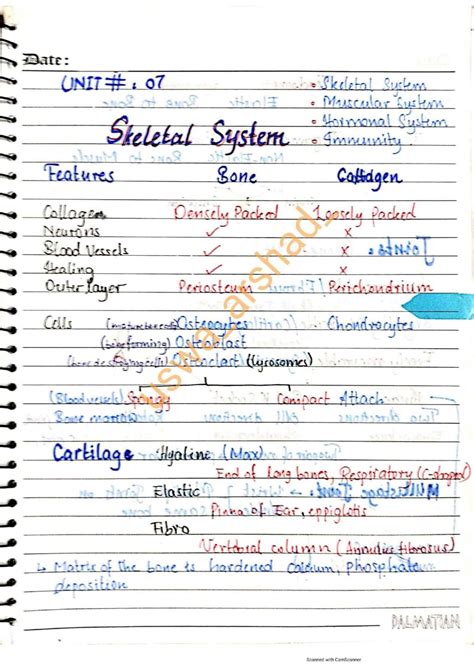 Date:
UNIT #: 07
• Skeletal System
• Muscular System
• Hormonal System
• Immunity
Skeletal System
Features Bone Collagen
Collagen Densely Packed Loosely Packed
Neurons ✓ x
Blood Vessels ✓ x
Healing ✓ x
Outer layer Periosteum Perichondrium
Cells (mature bone cells) Osteocytes Chondrocytes
(bone forming) Osteoblast
(bone destroying cells) Osteoclast (lysosomes)
(Blood vessels) Spongy Compact Attach
Bone marrow
Cartilage Hyaline (Max)
End of long bones, Respiratory (C-shaped)
Elastic
Pinna of Ear, eppiglotis
Fibro
Vertebral column (Annulus fibrosus)
↳ Matrix of the bone is hardened calcium, phosphate
deposition
uswa_arshad_
DALMATIAN
Scanned with CamScanner